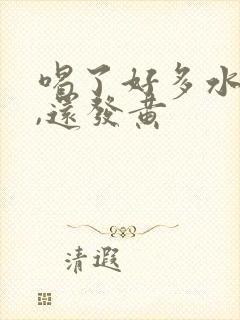 喝了好多水
,還發黃
清遐